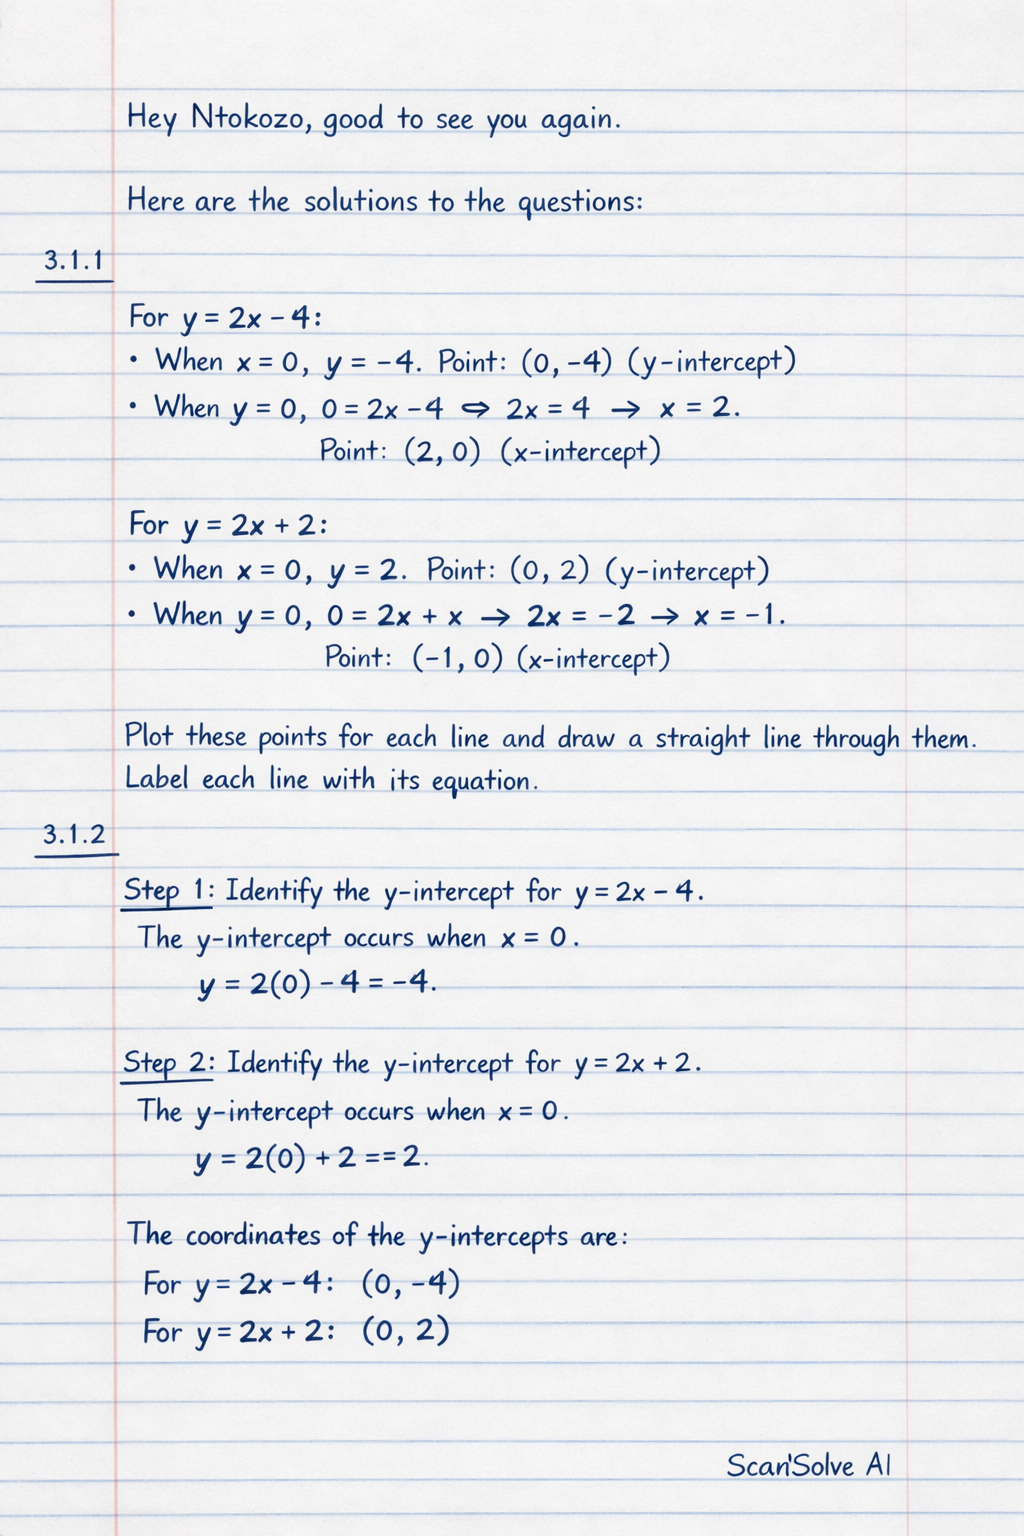 Hey Ntokozo, good to see you again.
Here are the solutions to the questions:
3.1.1
For y = 2x - 4:
• When x = 0, y = -4. Point: (0, -4) (y-intercept)
• When y = 0, 0 = 2x - 4 ⇔ 2x = 4 → x = 2.
Point: (2, 0) (x-intercept)
For y = 2x + 2:
• When x = 0, y = 2. Point: (0, 2) (y-intercept)
• When y = 0, 0 = 2x + x → 2x = -2 → x = -1.
Point: (-1, 0) (x-intercept)
Plot these points for each line and draw a straight line through them.
Label each line with its equation.
3.1.2
Step 1: Identify the y-intercept for y = 2x - 4.
The y-intercept occurs when x = 0.
y = 2(0) - 4 = -4.
Step 2: Identify the y-intercept for y = 2x + 2.
The y-intercept occurs when x = 0.
y = 2(0) + 2 == 2.
The coordinates of the y-intercepts are:
For y = 2x - 4: (0, -4)
For y = 2x + 2: (0, 2)
Scan'Solve AI